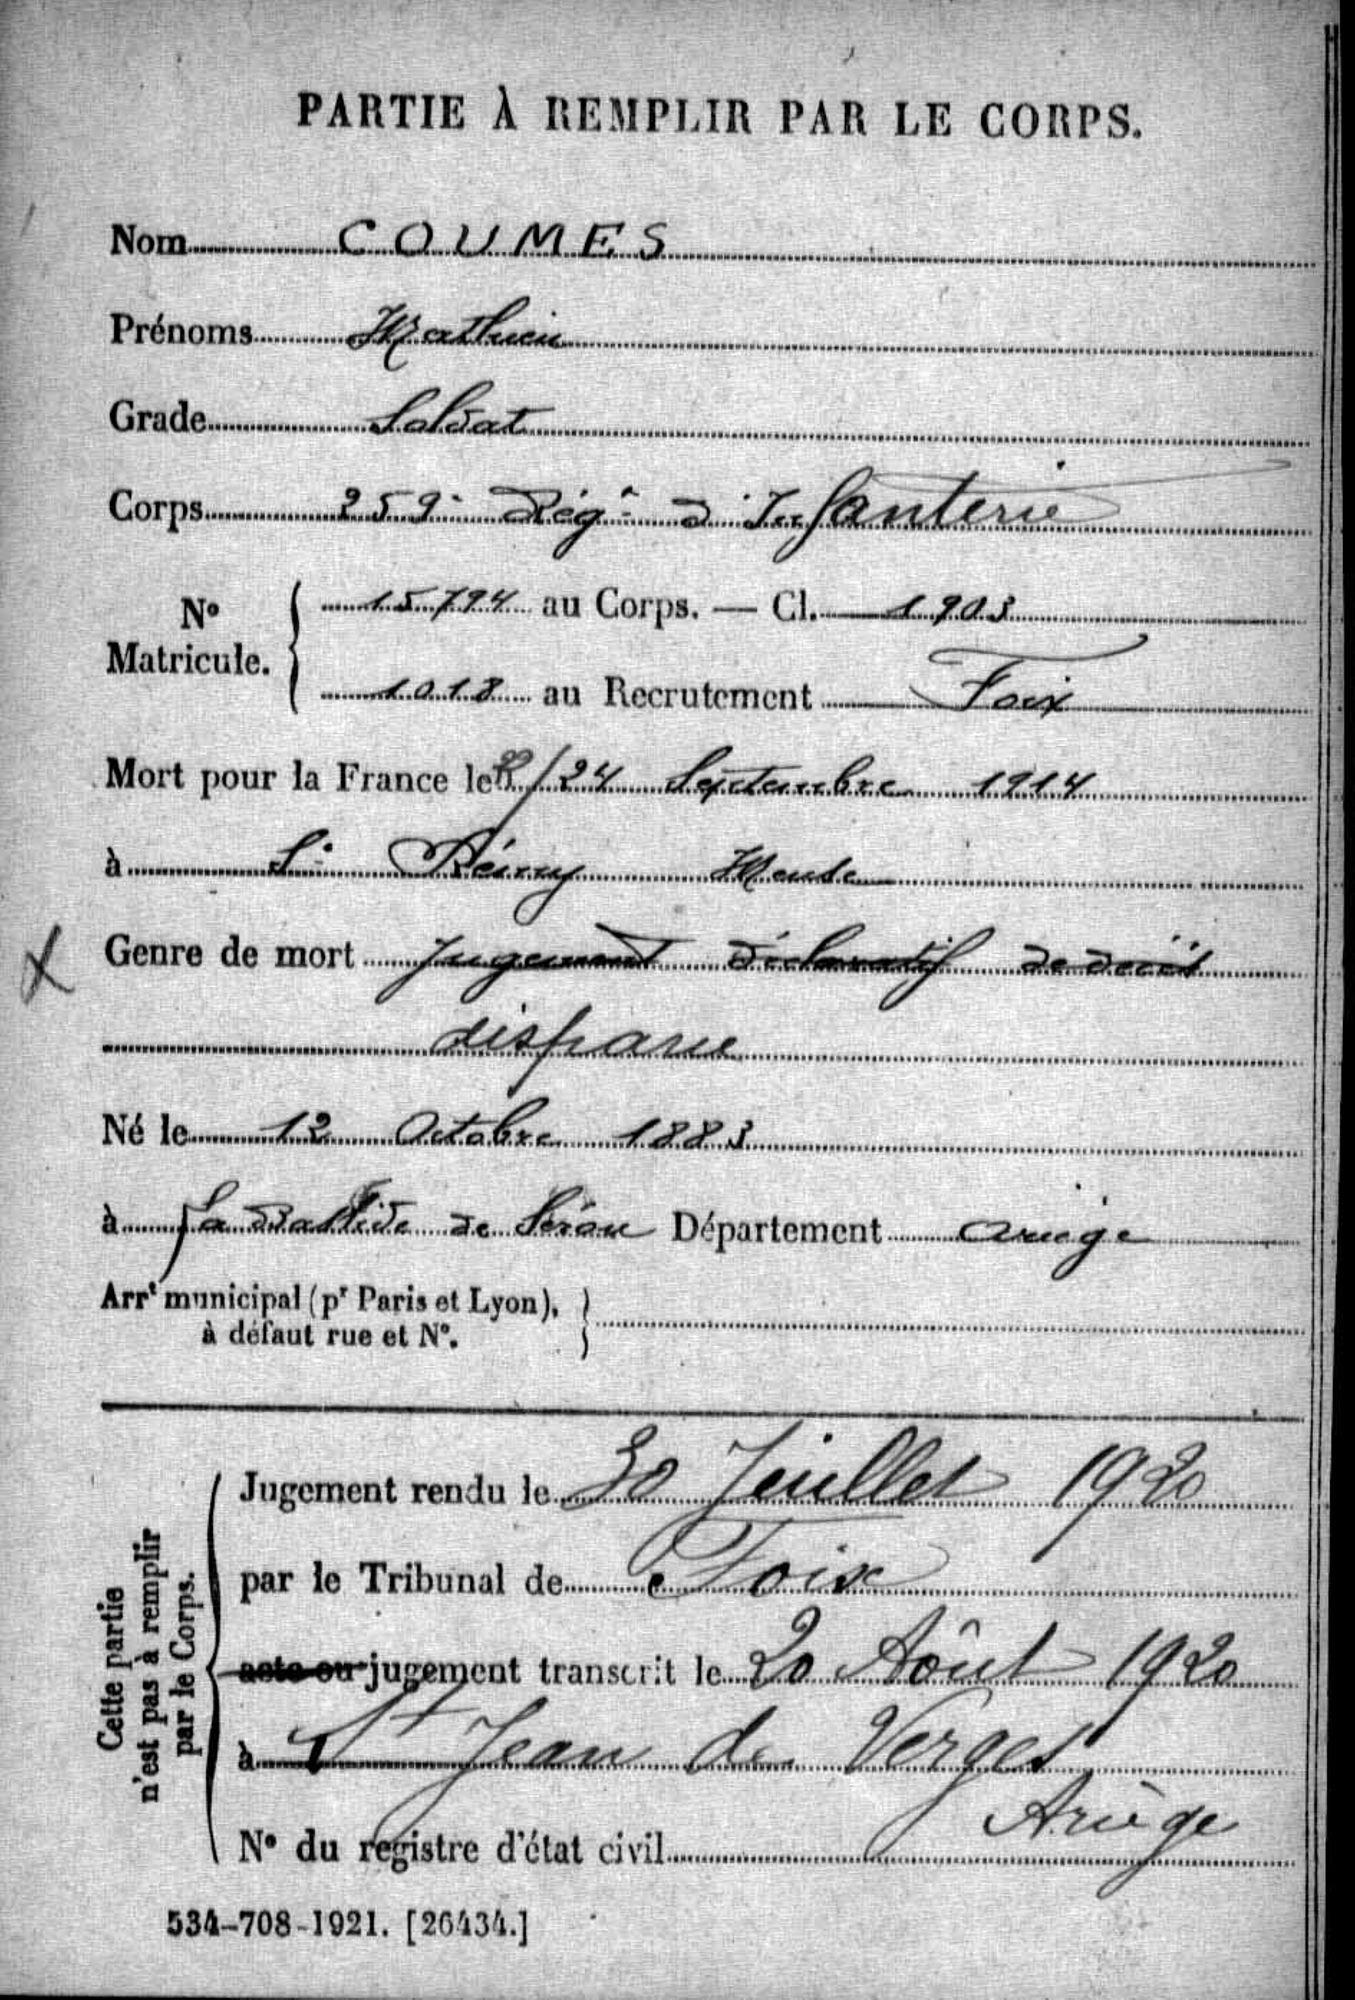 PARTIE À REMPLIR PAR LE CORPS.
Nom COUMES
Prénoms Mathieu
Grade Soldat
Corps 259e Régt d'Infanterie
No Matricule. 15794 au Corps. — Cl. 1903
1018 au Recrutement Foix
Mort pour la France le /24 Septembre 1914
à St Rémy Meuse
Genre de mort Jugement déclaratif de décès
disparu
Né le 12 Octobre 1883
à La Bastide de Sérou Département Ariège
Arrt municipal (pr Paris et Lyon),
à défaut rue et No.
Cette partie
n'est pas à remplir
par le Corps.
Jugement rendu le 30 Juillet 1920
par le Tribunal de Foix
acte ou jugement transcrit le 20 Août 1920
à St Jean de Verges
Ariège
No du registre d'état civil
534-708-1921. [26434.]